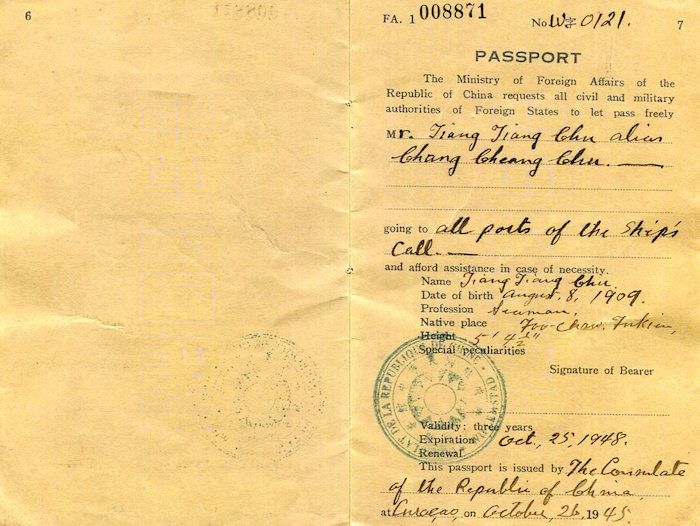 6
FA. 1 008871
No. 0121.
7
PASSPORT
The Ministry of Foreign Affairs of the
Republic of China requests all civil and military
authorities of Foreign States to let pass freely
Mr. Tiang Tiang Chu alias
Chang Cheang Chu.
going to all ports of the Ship's
Call.
and afford assistance in case of necessity.
Name Tiang Tiang Chu.
Date of birth August 8, 1909.
Profession Seaman.
Native place Foo-Chow, Fukien,
Height 5' 4½"
Special peculiarities
Signature of Bearer
DE LA REPUBLIQUE DE CHINE
Validity: three years
Expiration Oct., 25, 1948.
Renewal
This passport is issued by The Consulate
of the Republic of China
at Curaçao, on October 26, 1945